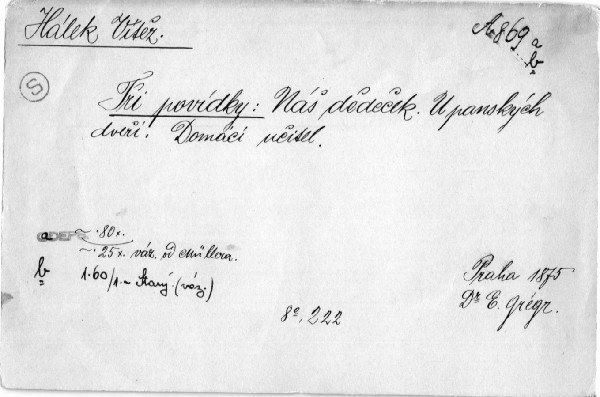 Hálek Vítěz.
A 869 a
b
S
Tři povídky: Náš dědeček. U panských
dveří. Domácí učitel.
a ~.80x.
~.25x. váz. od Müllera.
b 1.60/1.- Starý (váz.)
Praha 1875
8°, 222
Dr E. Grégr.